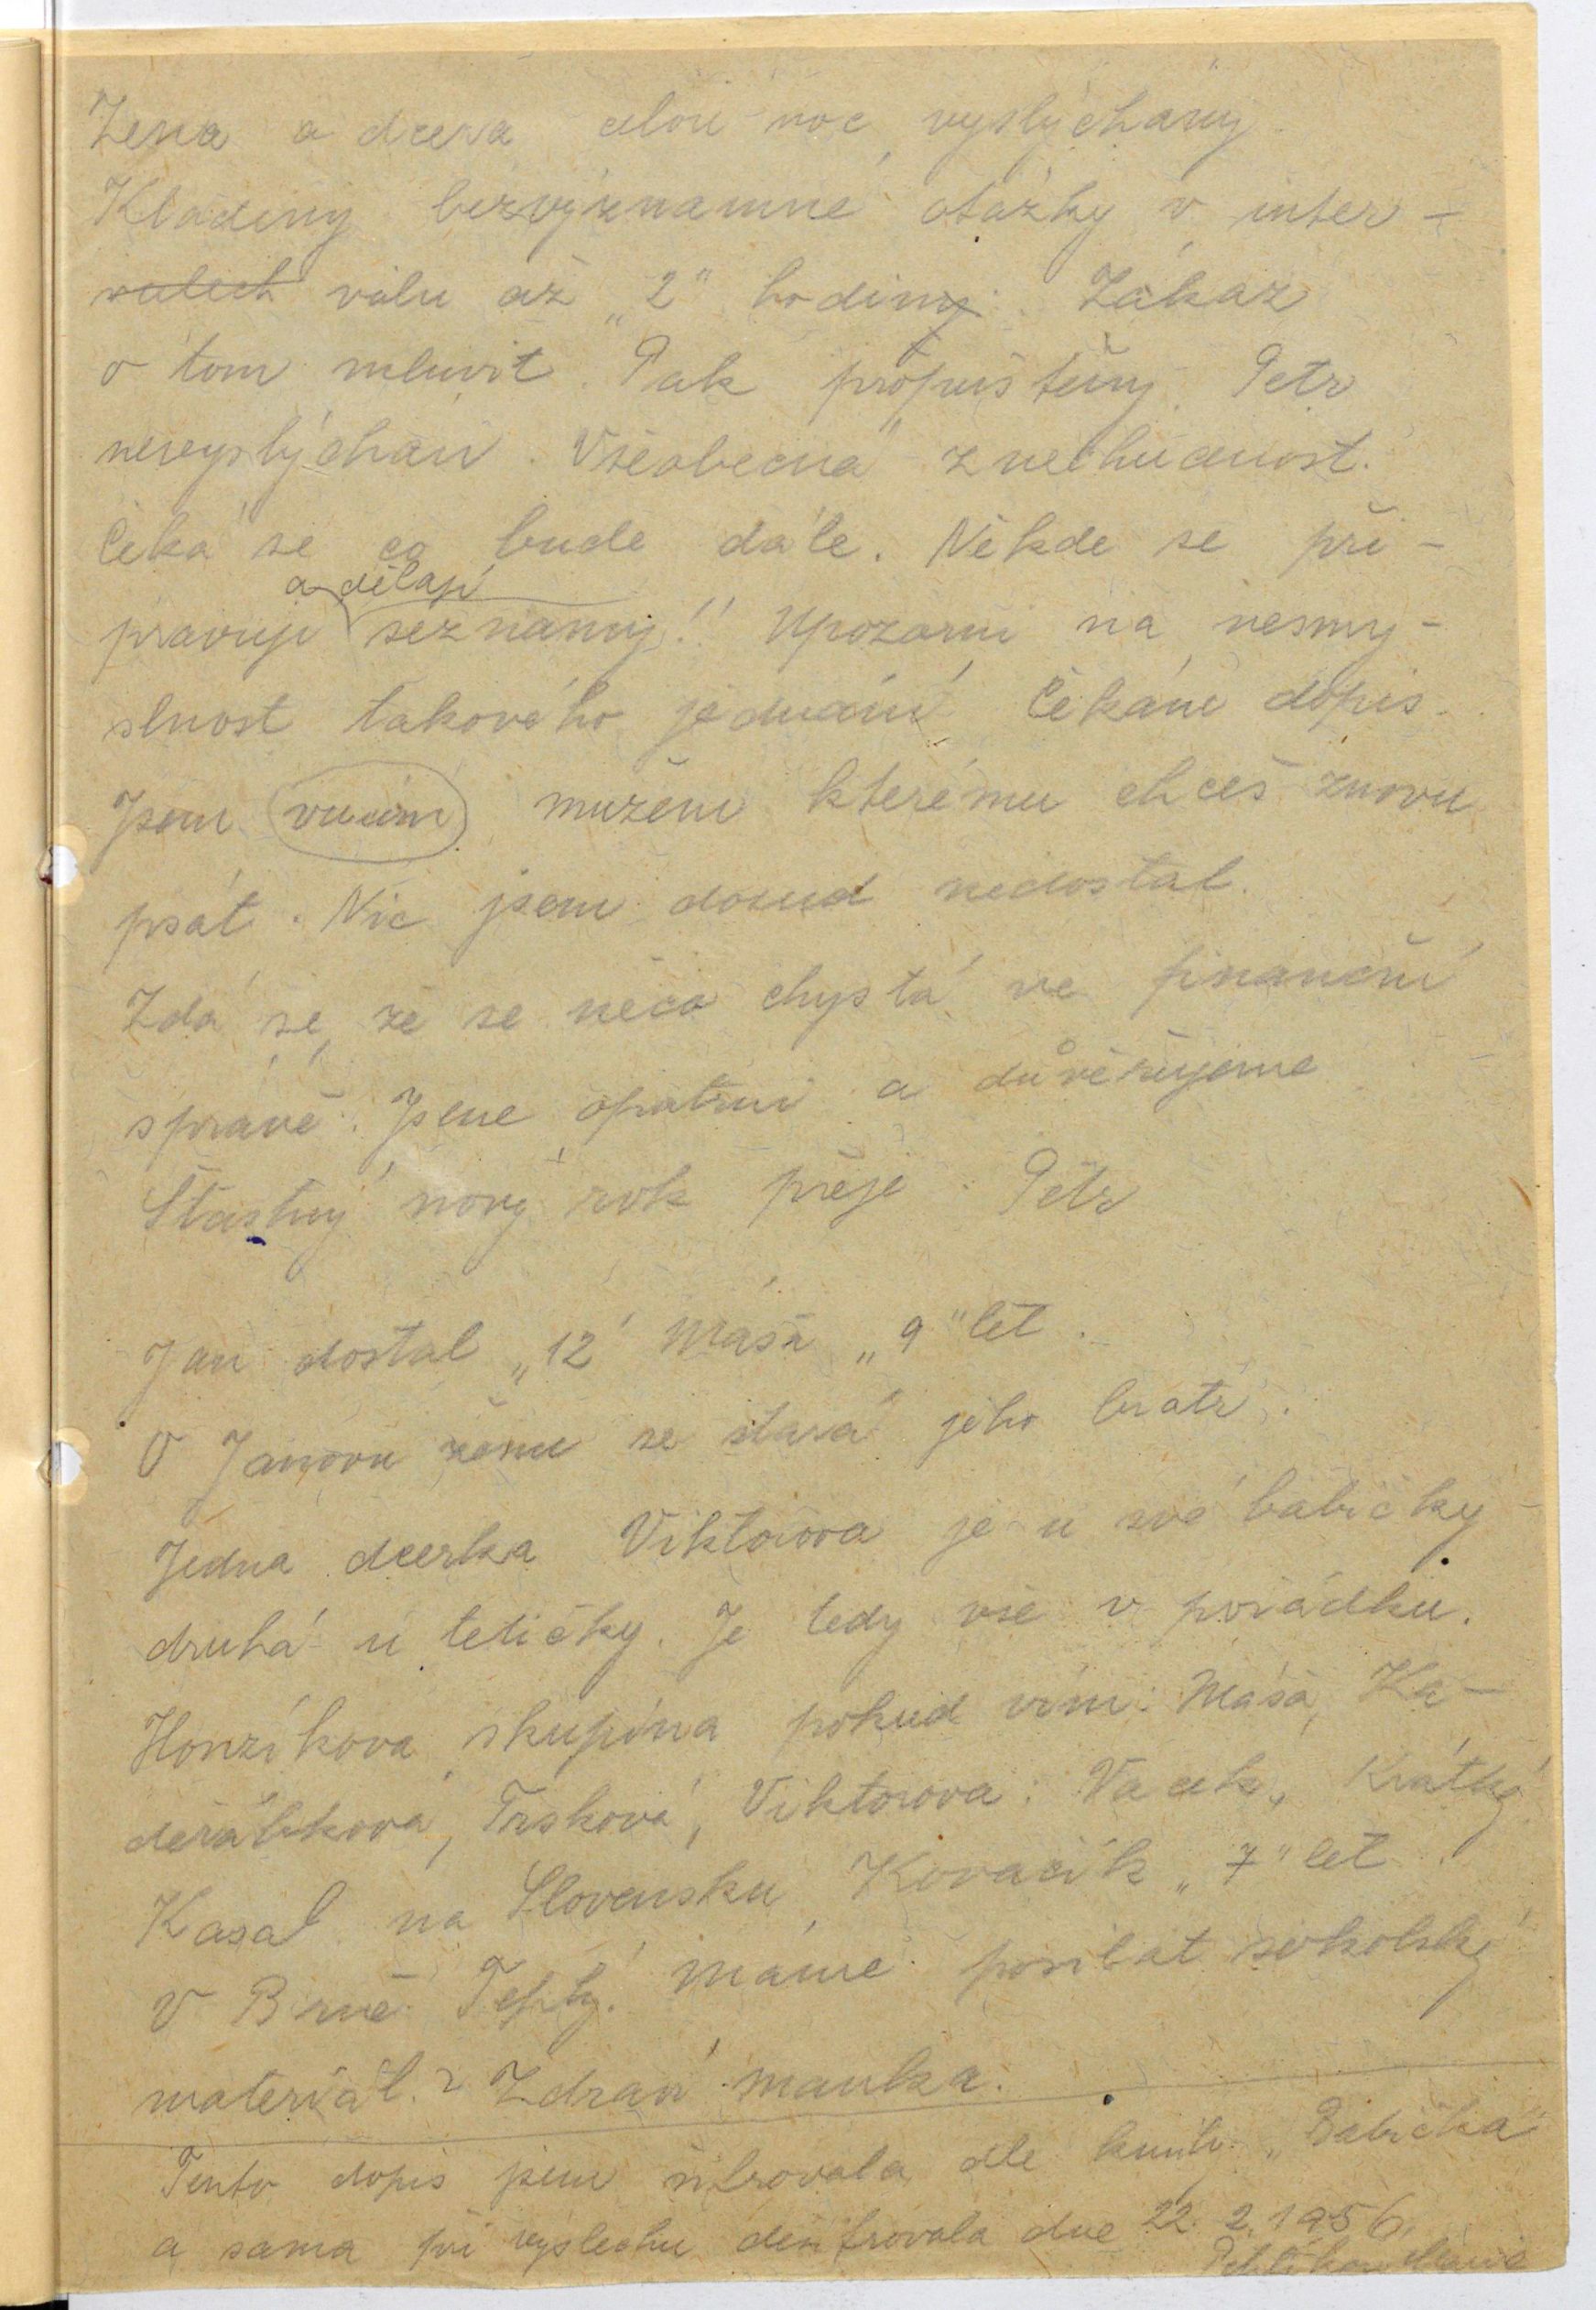 Žena a dcera celou noc vyslýchány.
Kladeny bezvýznamné otázky v inter-
valech válu až „2" hodiny. Zákaz
o tom mluvit. Pak propuštěny. Petr
nevyslýchán. Všeobecná znechucenost.
Čeká se co bude dále. Někde se při-
a dělají
pravují seznamy!! Upozorni na nesmy-
slnost takového jednání. Čekáme dopis.
Jsem mužem kterému chceš znovu
psát. Nic jsem dosud nedostal.
Zdá se, že se něco chystá ve finanční
správě. Jsme opatrni a důvěřujeme
Šťastný nový rok přeje Petr
Jan dostal „12" Máša „9" let.
O Janovu ženu se stará jeho bratr.
Jedna dcerka Viktorova je u své babičky
druhá u tetičky. Je tedy vše v pořádku.
Honzíkova skupina pokud vím: Máša, Ka-
deřábková, Trsková, Viktorova: Vacek, Krátký
Kasal na Slovensku Kovačík „7" let.
V Brně Teplý. Máme posílat sokolský
materiál? Zdraví manka.
Tento dopis jsem šifrovala dle knihy „Babička"
a sama při výslechu dešifrovala dne 22. 2. 1956.
Marie